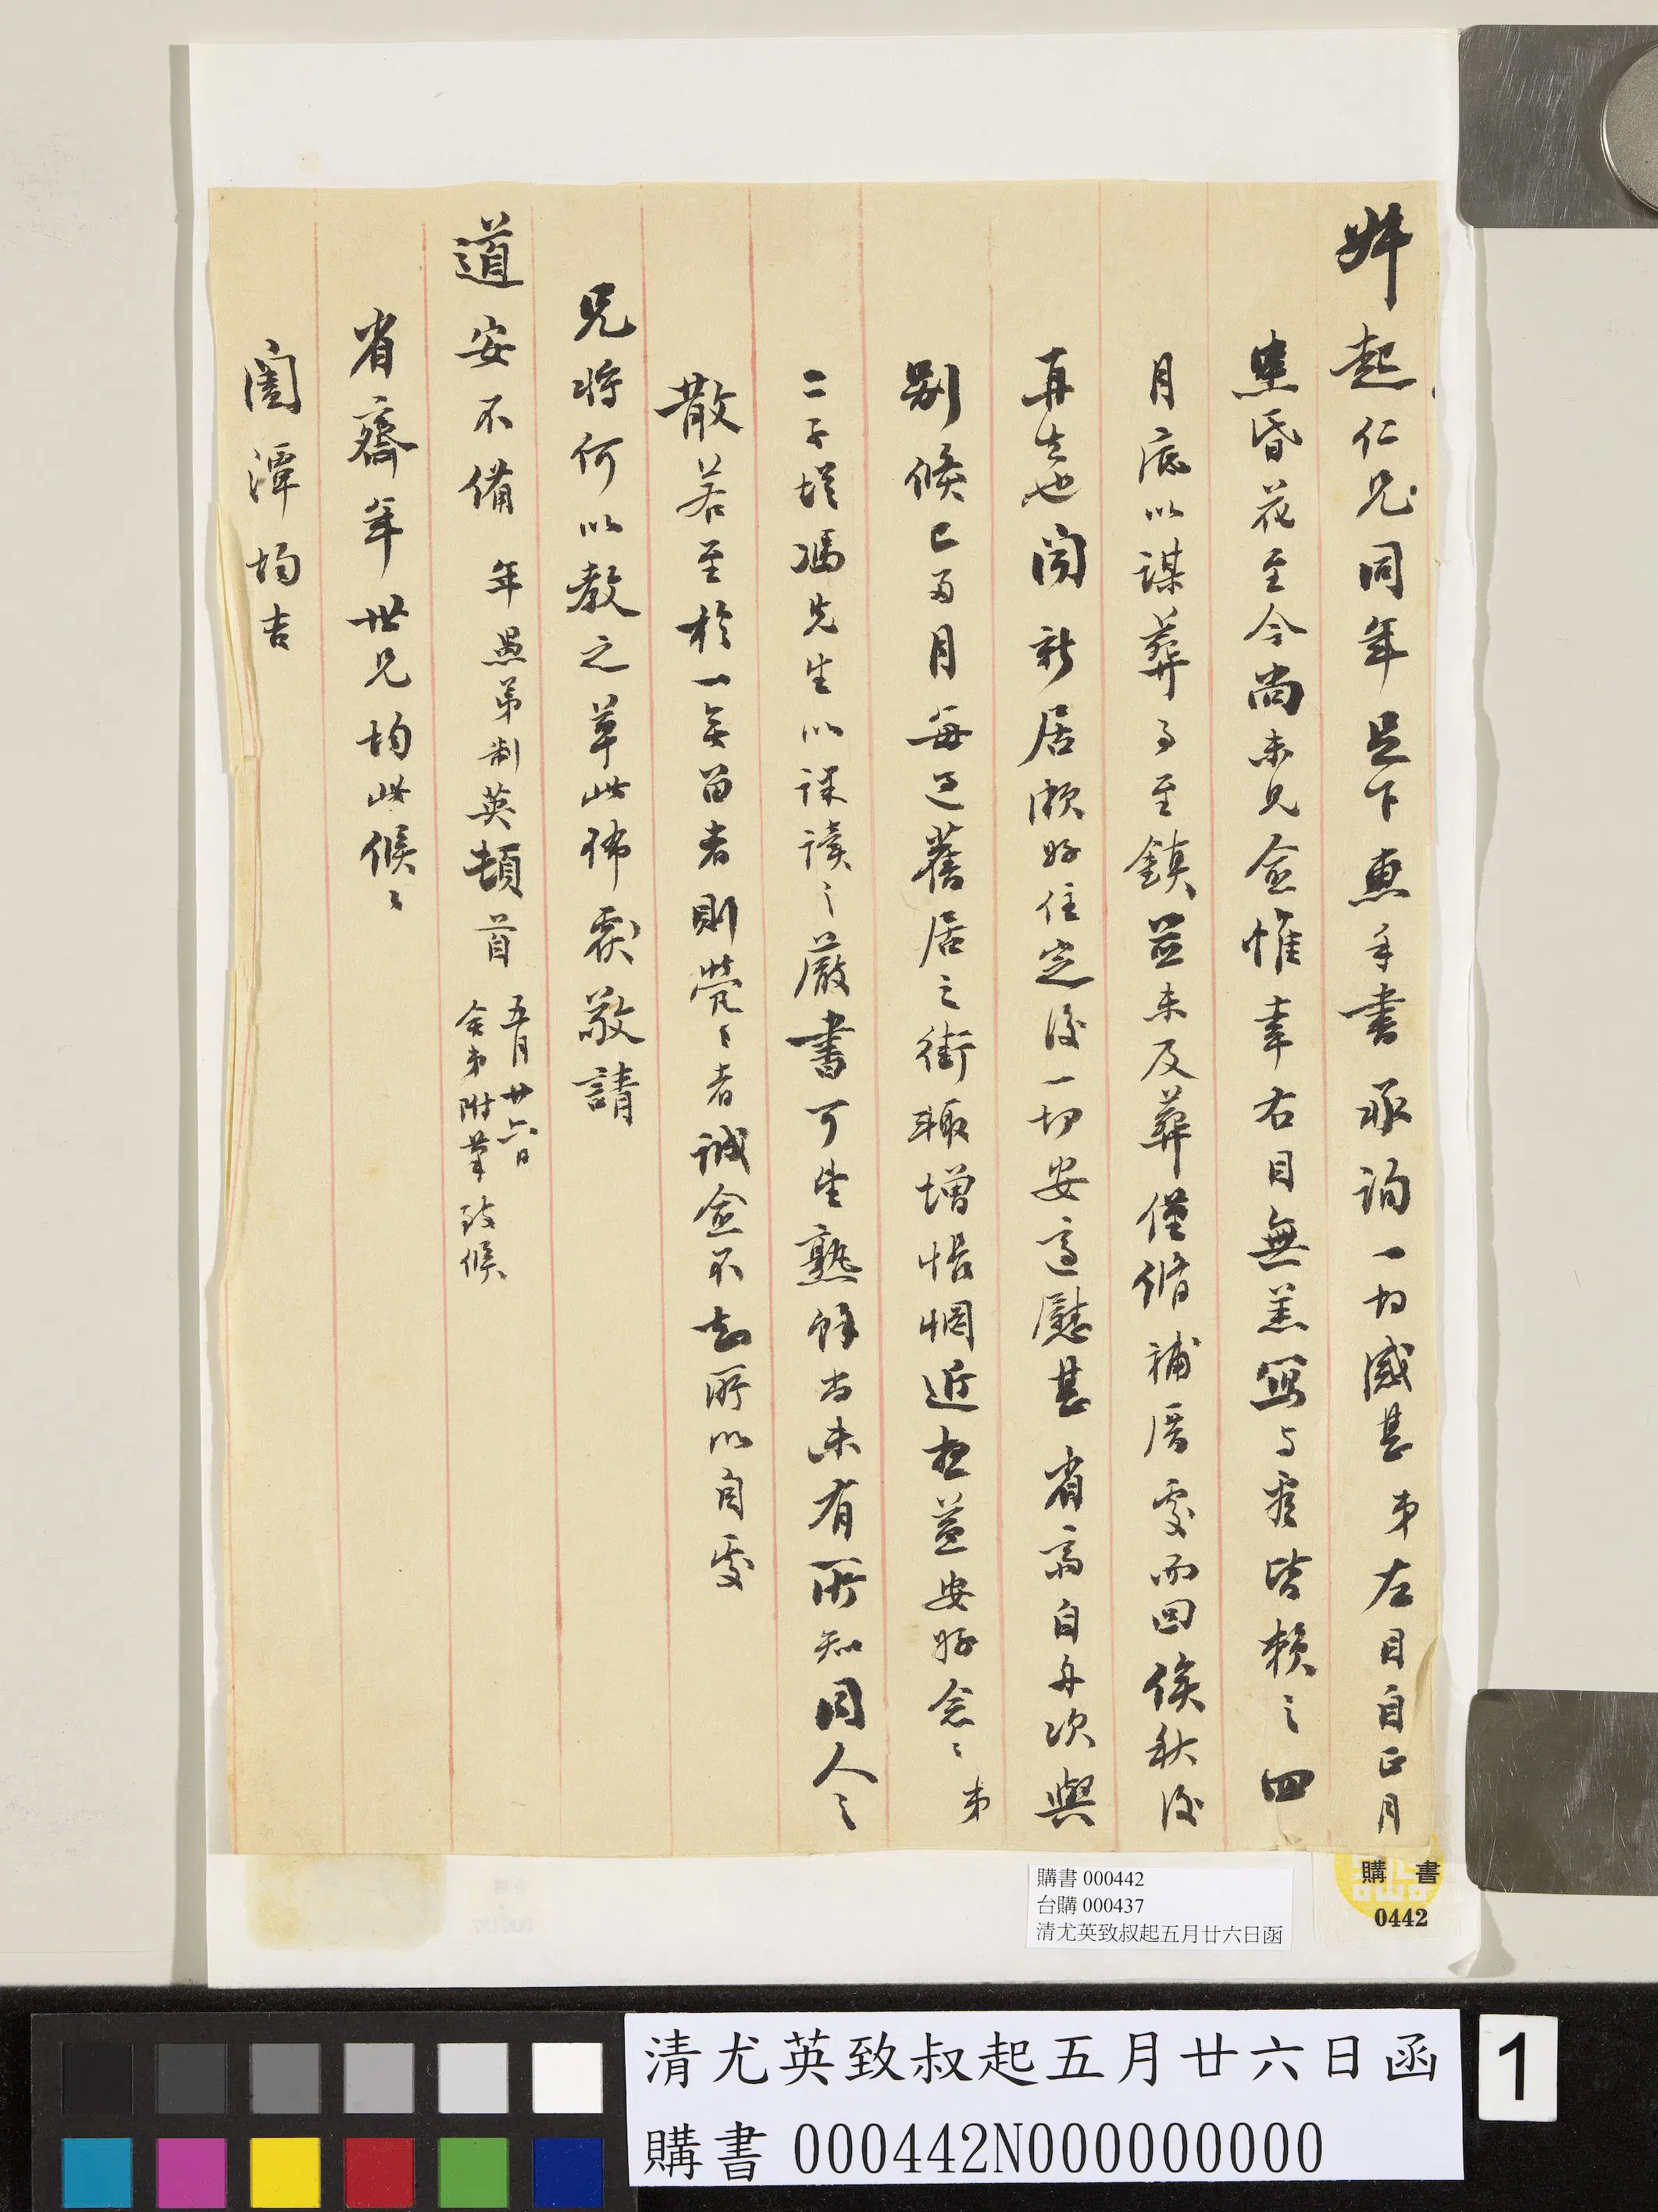 起仁兄同年足下惠手書承詢一切感甚弟左目自正月
患昏花至今尚未見愈惟幸右目無恙寫与看皆賴之四
月底以謀葬了至鎮並未及葬僅脩補厝處而回俟秋後
再去也聞新居頗好住定後一切安適慰甚省齋自舟次與
別後已五月每過舊居之街輒增悵惘近想益安好念〻弟
二子從馮先生以課讀之嚴書可望熟餘尚未有所知同人之
散若至於一無留者則煢〻者誠愈不知所以自處
兄將何以教之草此佈覆敬請
道安不備 年愚弟制英頓首 五月廿六日
舍弟附筆致候
省齋年世兄均此候〻
閤潭均吉
購書 000442
台購 000437
清尤英致叔起五月廿六日函
購書
0442
清尤英致叔起五月廿六日函
購書 000442N000000000
1